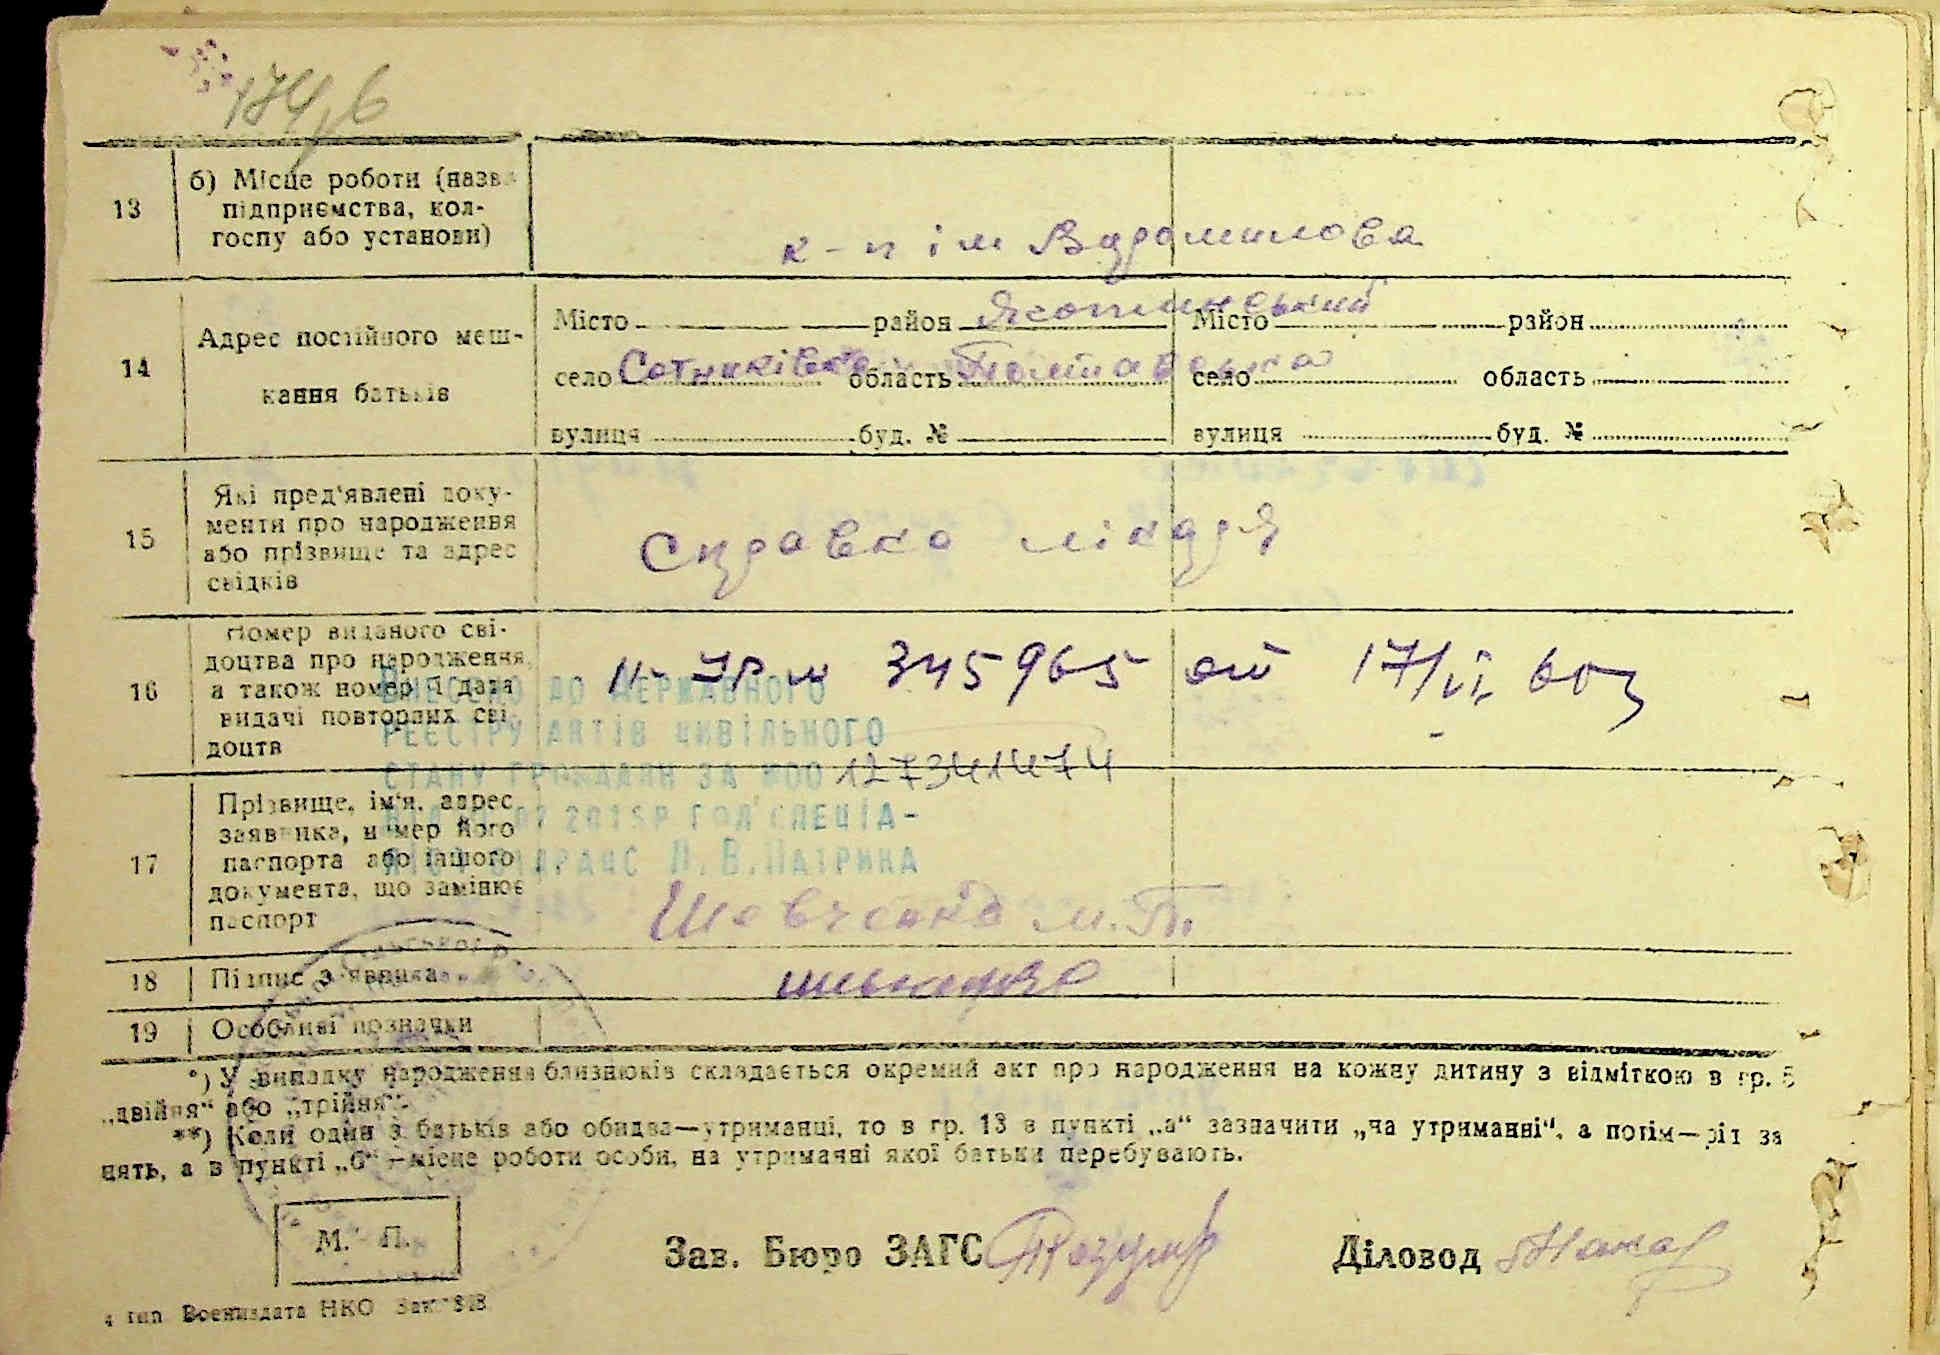 174,б
13
б) Місце роботи (назва
підприємства, кол-
госпу або установи)
к-п ім Ворошилова
14
Адрес постійного меш-
кання батьків
Місто район Яготинський Місто район
село Сотниківка область Полтавська село область
вулиця буд. № вулиця буд. №
15
Які пред'явлені доку-
менти про народження
або прізвище та адрес
свідків
Справка лікаря
16
Номер виданого сві-
доцтва про народження,
а також номер і дата
видачі повторних сві-
доцтв
345965 от 17/VI 60р
ВНЕСЕНО ДО ДЕРЖАВНОГО
РЕЄСТРУ АКТІВ ЦИВІЛЬНОГО
СТАНУ ГРОМАДЯН ЗА №00 127341474
2015Р ГОЛ СПЕЦІА-
ЛІСТ ВДРАЦС Л.В.ПАТРИКА
17
Прізвище, ім'я, адрес
заявника, номер його
паспорта або іншого
документа, що замінює
паспорт
Шевченко М.П.
18 Підпис заявника
19 Особливі позначки
*) У випадку народження близнюків складається окремий акт про народження на кожну дитину з відміткою в гр. 5
„двійня“ або „трійня“.
**) Коли один з батьків або обидва—утриманці, то в гр. 13 в пункті „а“ зазначити „на утриманні“, а потім—рід за
нять, а в пункті „б“ —місце роботи особи, на утриманні якої батьки перебувають.
М. П.
Зав. Бюро ЗАГС
Діловод
тип Воениздата НКО Зак.